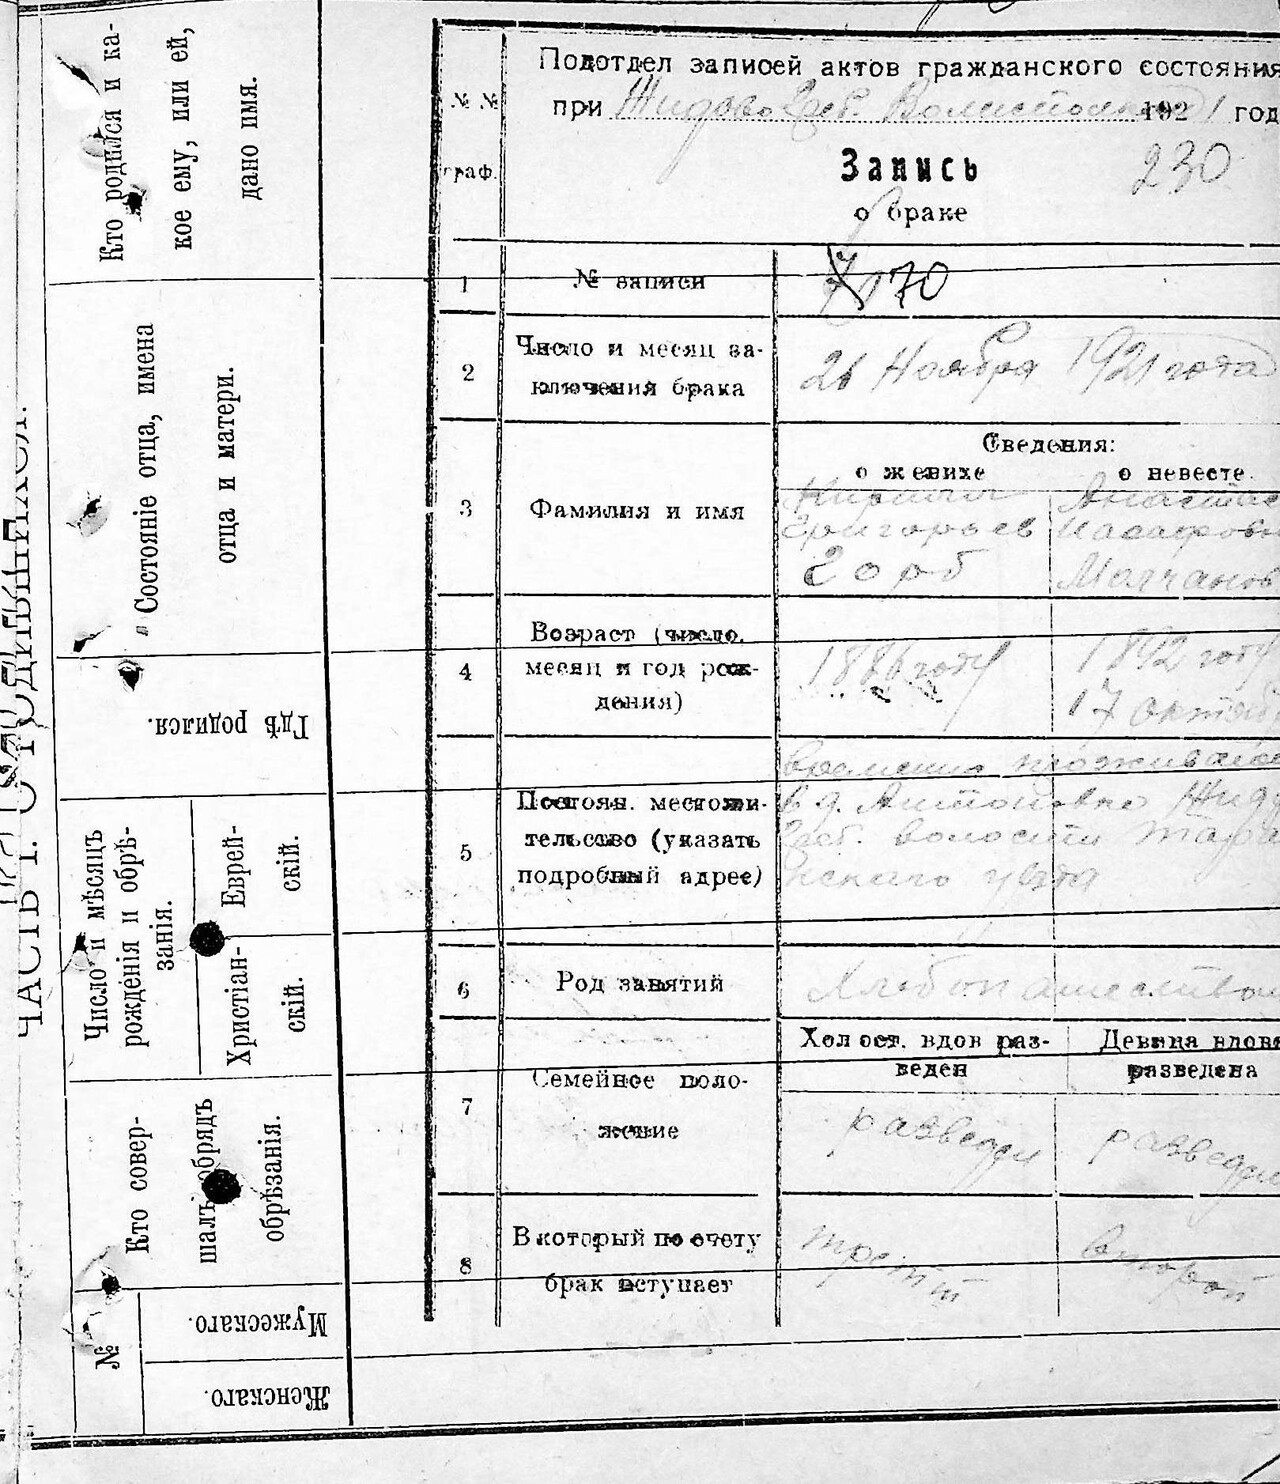 ЧАСТЬ I. О РОДИВШИХСЯ.
Кто родился и ка-
кое ему, или ей,
дано имя.
Состояніе отца, имена
отца и матери.
Гдѣ родился.
Число и мѣсяцъ
рожденія и обрѣ-
занія.
Еврей-
скій.
Христіан-
скій.
Кто совер-
шалъ обрядъ
обрѣзанія.
№
Мужескаго.
Женскаго.
№ №
граф.
Подотдел записей актов гражданского состояния
при Волисполкоме 1921 год
Запись 230
о браке
1 № записи 70
2 Число и месяц за-
ключения брака
26 Ноября 1921 года
Сведения:
о женихе о невесте
3 Фамилия и имя
Григорьев
Молчанов
4 Возраст (число,
месяц и год рож-
дения)
1886 году 1892 году
17 октяб
5 Постоян. местожи-
тельство (указать
подробный адрес)
временно проживаю
в д. Антоповке Жид
волости Тара
нскаго уезда
6 Род занятий Хлебопашество
7 Семейное поло-
жение
Холост. вдов раз-
веден
Девица вдова
разведена
разведен разведен
8 В который по счету
брак вступает
трети второй